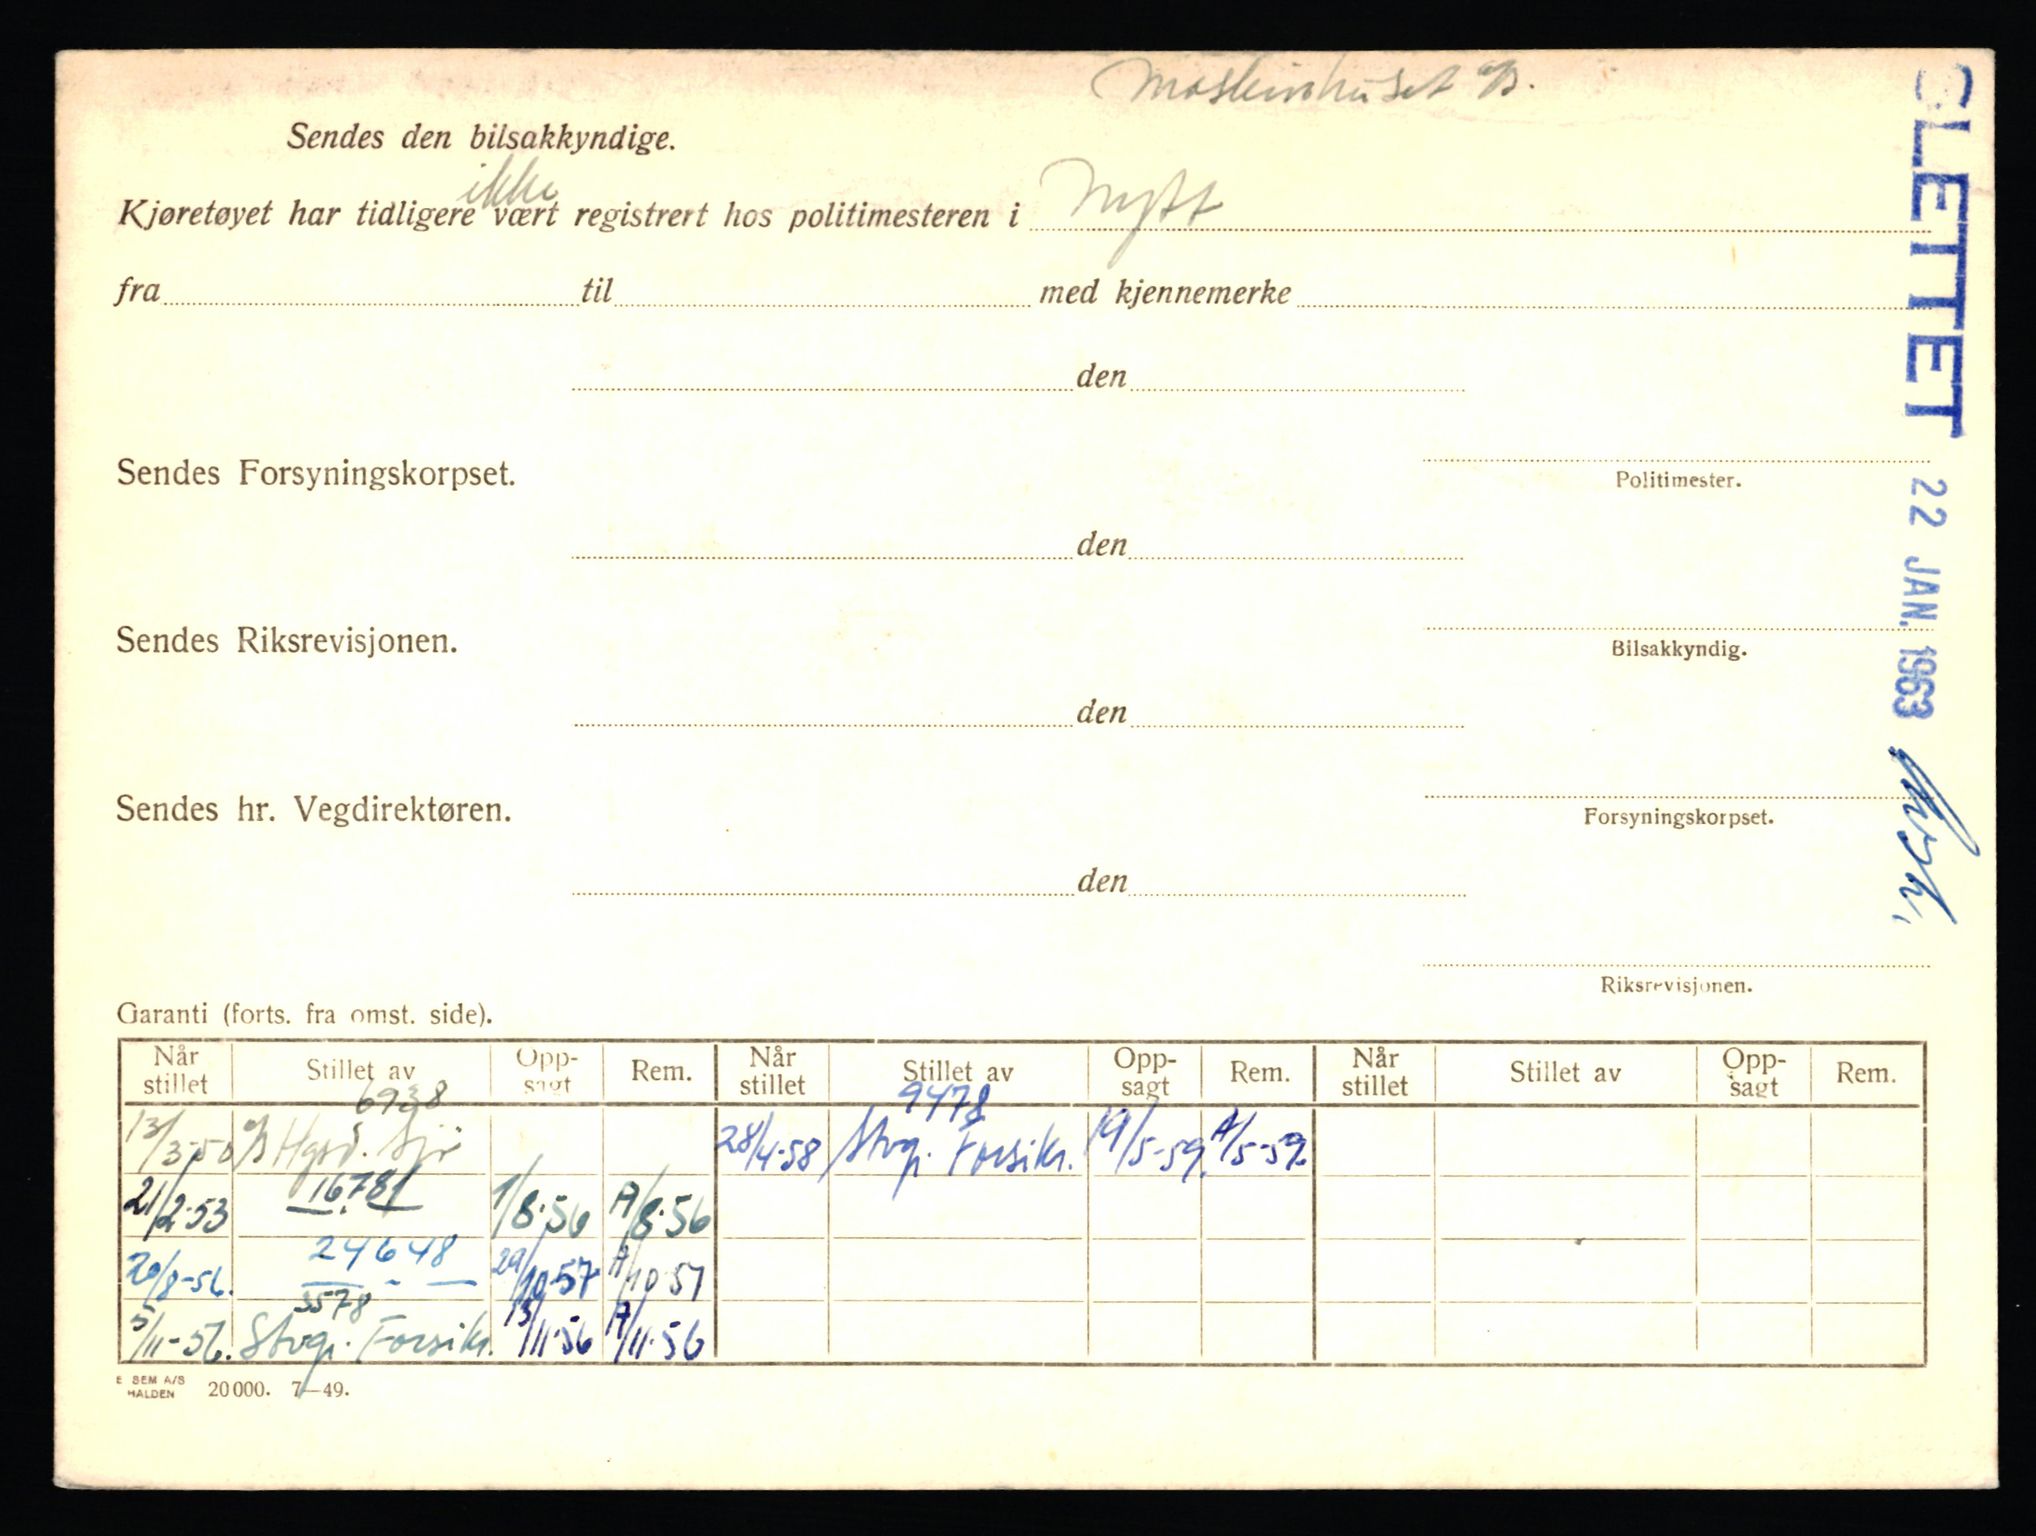 Maskinhuset A/S.
Sendes den bilsakkyndige.
ikke
Kjøretøyet har tidligere vært registrert hos politimesteren i Nytt
fra til med kjennemerke
den
Sendes Forsyningskorpset.
Politimester.
den
Sendes Riksrevisjonen.
Bilsakkyndig.
den
Sendes hr. Vegdirektøren.
Forsyningskorpset.
den
Riksrevisjonen.
SLETTET 22 JAN. 1963
Garanti (forts. fra omst. side).
Når stillet Stillet av Opp-sagt Rem. Når stillet Stillet av Opp-sagt Rem. Når stillet Stillet av Opp-sagt Rem.
6938 9478
13/3-50 28/4-58 Stvg. Forsikr. 19/5-59. A/5-59.
21/2-53 16781 1/8-56 A/8-56
20/8-56. 24648 29/10-57 A/10-57
3578
5/11-56. Stvg. Forsikr. 13/11-56 A/11-56
E SEM A/S
HALDEN 20000. 7—49.